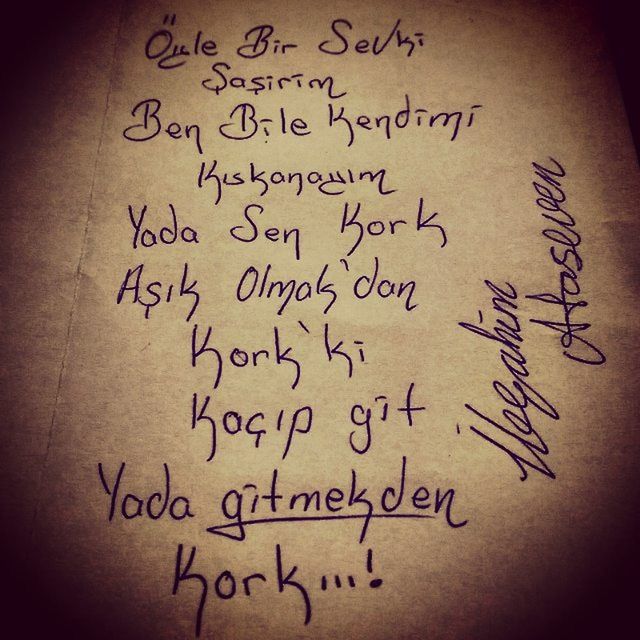 Öyle Bir Sevki
Şaşirim
Ben Bile Kendimi
Kıskanayım
Yada Sen Kork
Aşık Olmak'dan
Kork'ki
Kaçıp git
Yada gitmekden
Kork...!
Ataseven